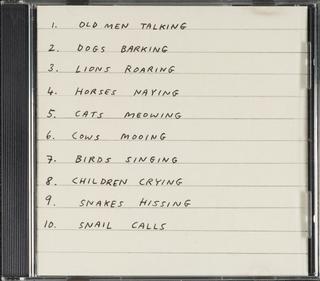 1. OLD MEN TALKING
2. DOGS BARKING
3. LIONS ROARING
4. HORSES NAYING
5. CATS MEOWING
6. COWS MOOING
7. BIRDS SINGING
8. CHILDREN CRYING
9. SNAKES HISSING
10. SNAIL CALLS